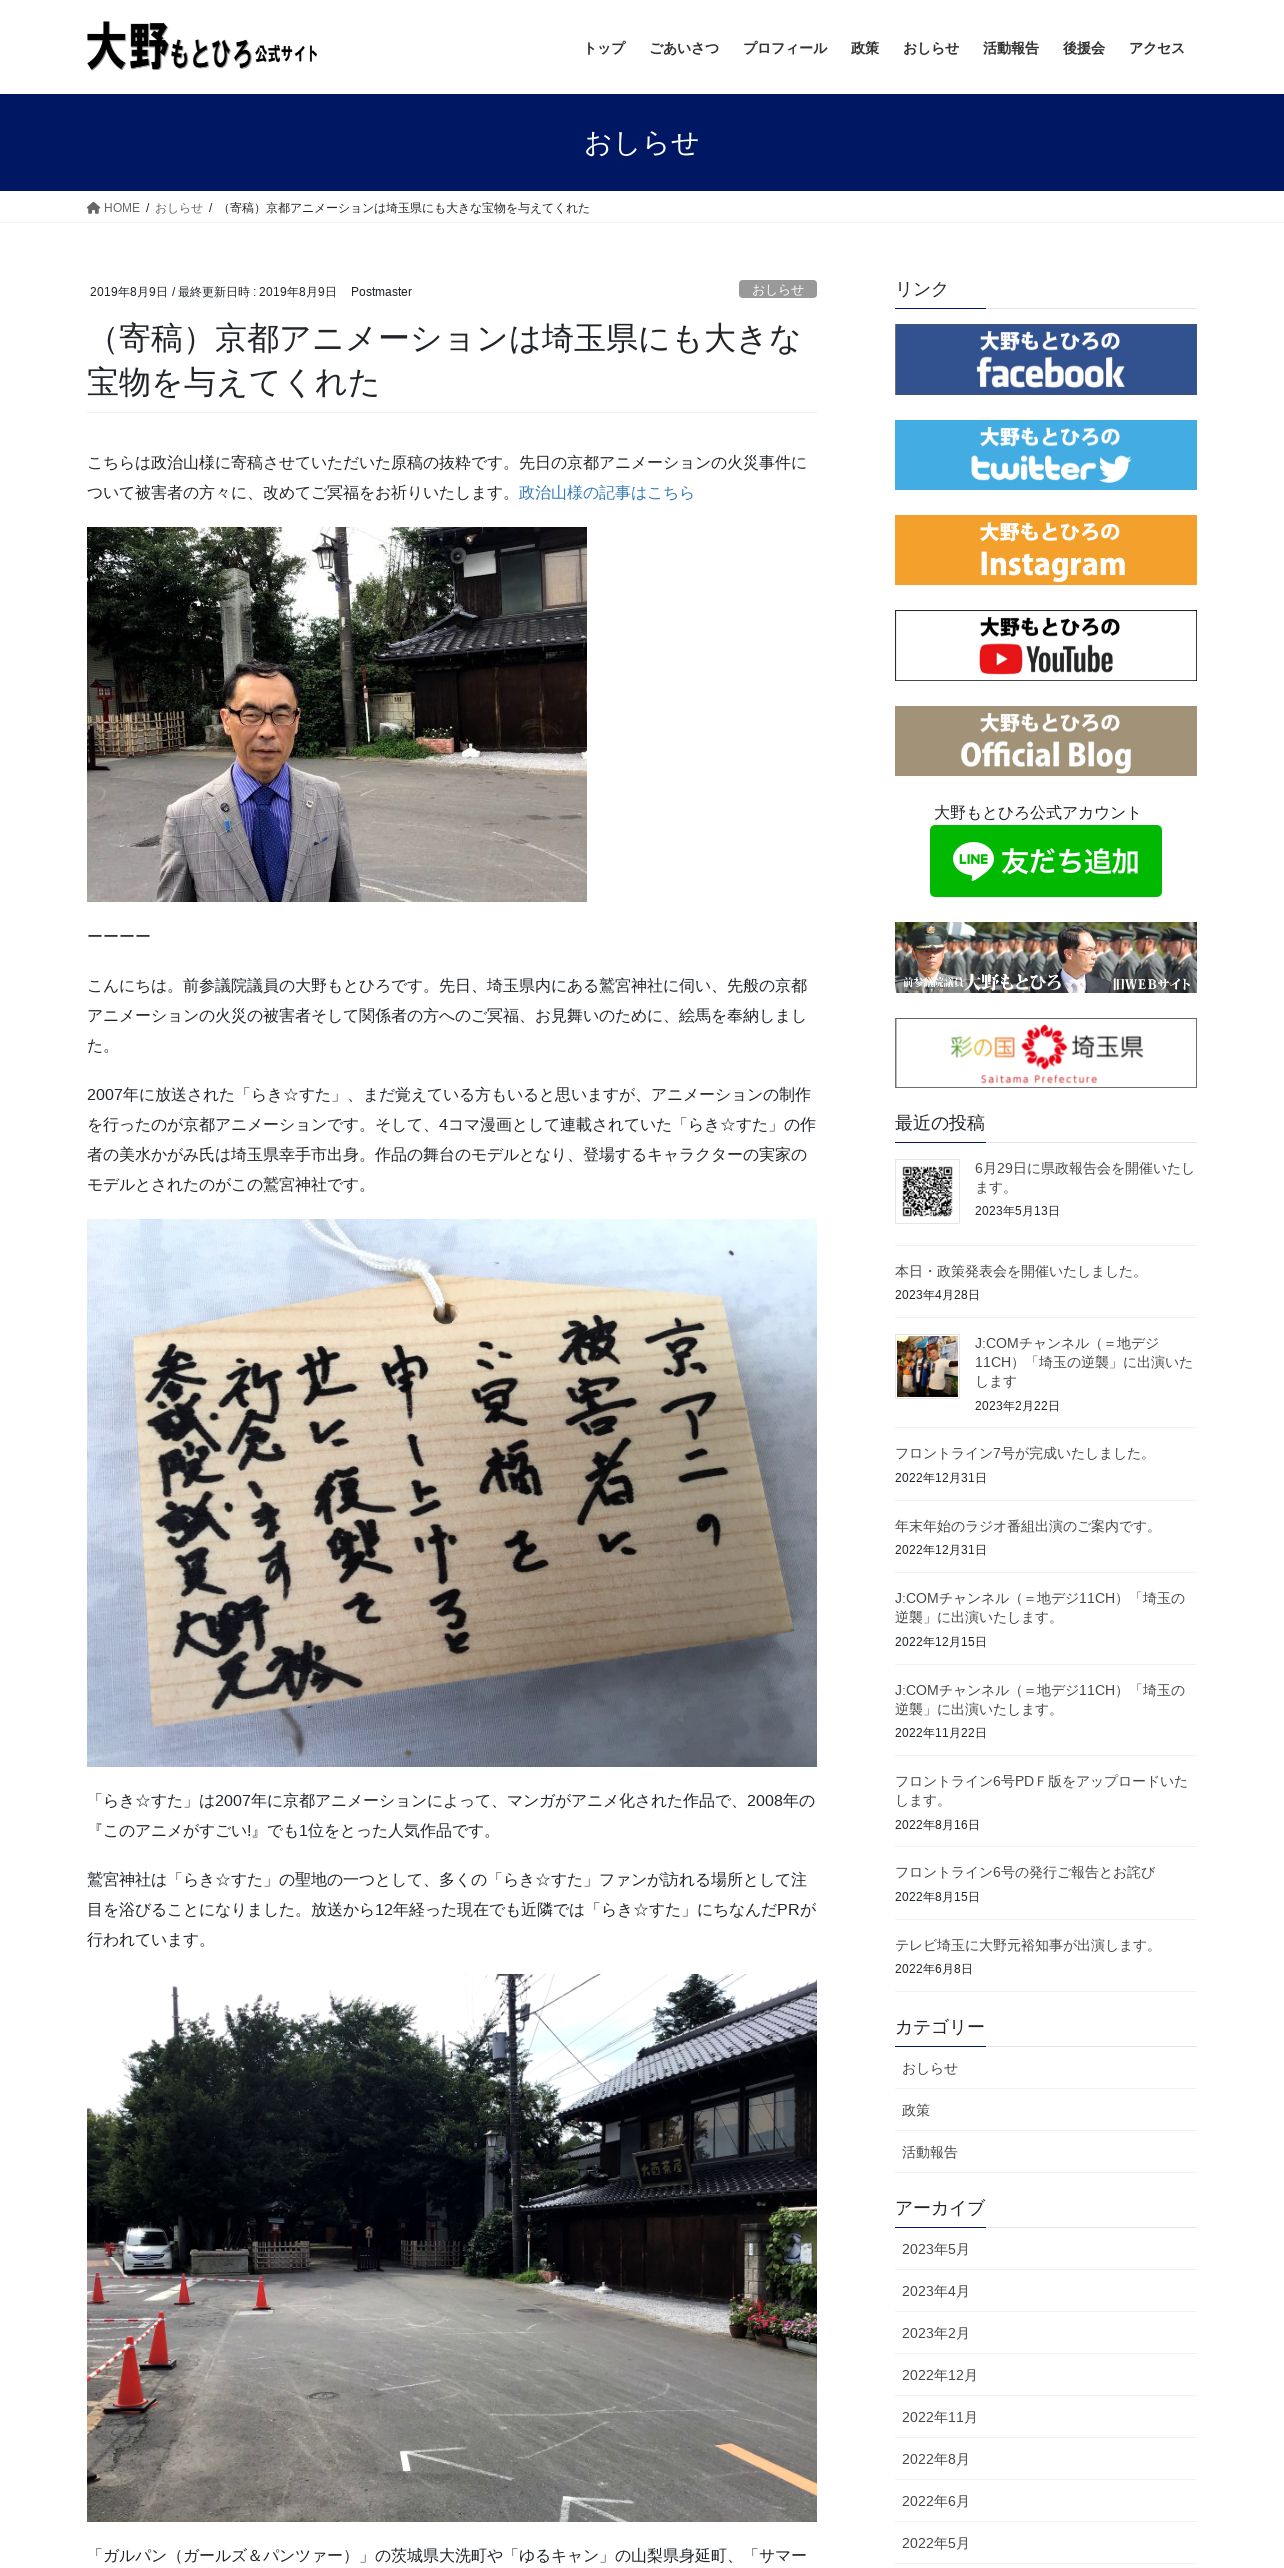 大野もとひろ公式サイト
トップ ごあいさつ プロフィール 政策 おしらせ 活動報告 後援会 アクセス
おしらせ
HOME / おしらせ / （寄稿）京都アニメーションは埼玉県にも大きな宝物を与えてくれた
2019年8月9日 / 最終更新日時 : 2019年8月9日 Postmaster
おしらせ
（寄稿）京都アニメーションは埼玉県にも大きな
宝物を与えてくれた
こちらは政治山様に寄稿させていただいた原稿の抜粋です。先日の京都アニメーションの火災事件に
ついて被害者の方々に、改めてご冥福をお祈りいたします。政治山様の記事はこちら
ーーーー
こんにちは。前参議院議員の大野もとひろです。先日、埼玉県内にある鷲宮神社に伺い、先般の京都
アニメーションの火災の被害者そして関係者の方へのご冥福、お見舞いのために、絵馬を奉納しまし
た。
2007年に放送された「らき☆すた」、まだ覚えている方もいると思いますが、アニメーションの制作
を行ったのが京都アニメーションです。そして、4コマ漫画として連載されていた「らき☆すた」の作
者の美水かがみ氏は埼玉県幸手市出身。作品の舞台のモデルとなり、登場するキャラクターの実家の
モデルとされたのがこの鷲宮神社です。
京アニの
被害者に
ご冥福を
申し上げると
共に復興を
祈念します
参議院議員
大野元裕
「らき☆すた」は2007年に京都アニメーションによって、マンガがアニメ化された作品で、2008年の
『このアニメがすごい!』でも1位をとった人気作品です。
鷲宮神社は「らき☆すた」の聖地の一つとして、多くの「らき☆すた」ファンが訪れる場所として注
目を浴びることになりました。放送から12年経った現在でも近隣では「らき☆すた」にちなんだPRが
行われています。
大酉茶屋
「ガルパン（ガールズ＆パンツァー）」の茨城県大洗町や「ゆるキャン」の山梨県身延町、「サマー
リンク
大野もとひろの
facebook
大野もとひろの
twitter
大野もとひろの
Instagram
大野もとひろの
YouTube
大野もとひろの
Official Blog
大野もとひろ公式アカウント
LINE 友だち追加
前参議院議員 大野もとひろ 旧WEBサイト
彩の国 埼玉県
Saitama Prefecture
最近の投稿
6月29日に県政報告会を開催いたし
ます。
2023年5月13日
本日・政策発表会を開催いたしました。
2023年4月28日
J:COMチャンネル（＝地デジ
11CH）「埼玉の逆襲」に出演いた
します
2023年2月22日
フロントライン7号が完成いたしました。
2022年12月31日
年末年始のラジオ番組出演のご案内です。
2022年12月31日
J:COMチャンネル（＝地デジ11CH）「埼玉の
逆襲」に出演いたします。
2022年12月15日
J:COMチャンネル（＝地デジ11CH）「埼玉の
逆襲」に出演いたします。
2022年11月22日
フロントライン6号PDＦ版をアップロードいた
します。
2022年8月16日
フロントライン6号の発行ご報告とお詫び
2022年8月15日
テレビ埼玉に大野元裕知事が出演します。
2022年6月8日
カテゴリー
おしらせ
政策
活動報告
アーカイブ
2023年5月
2023年4月
2023年2月
2022年12月
2022年11月
2022年8月
2022年6月
2022年5月